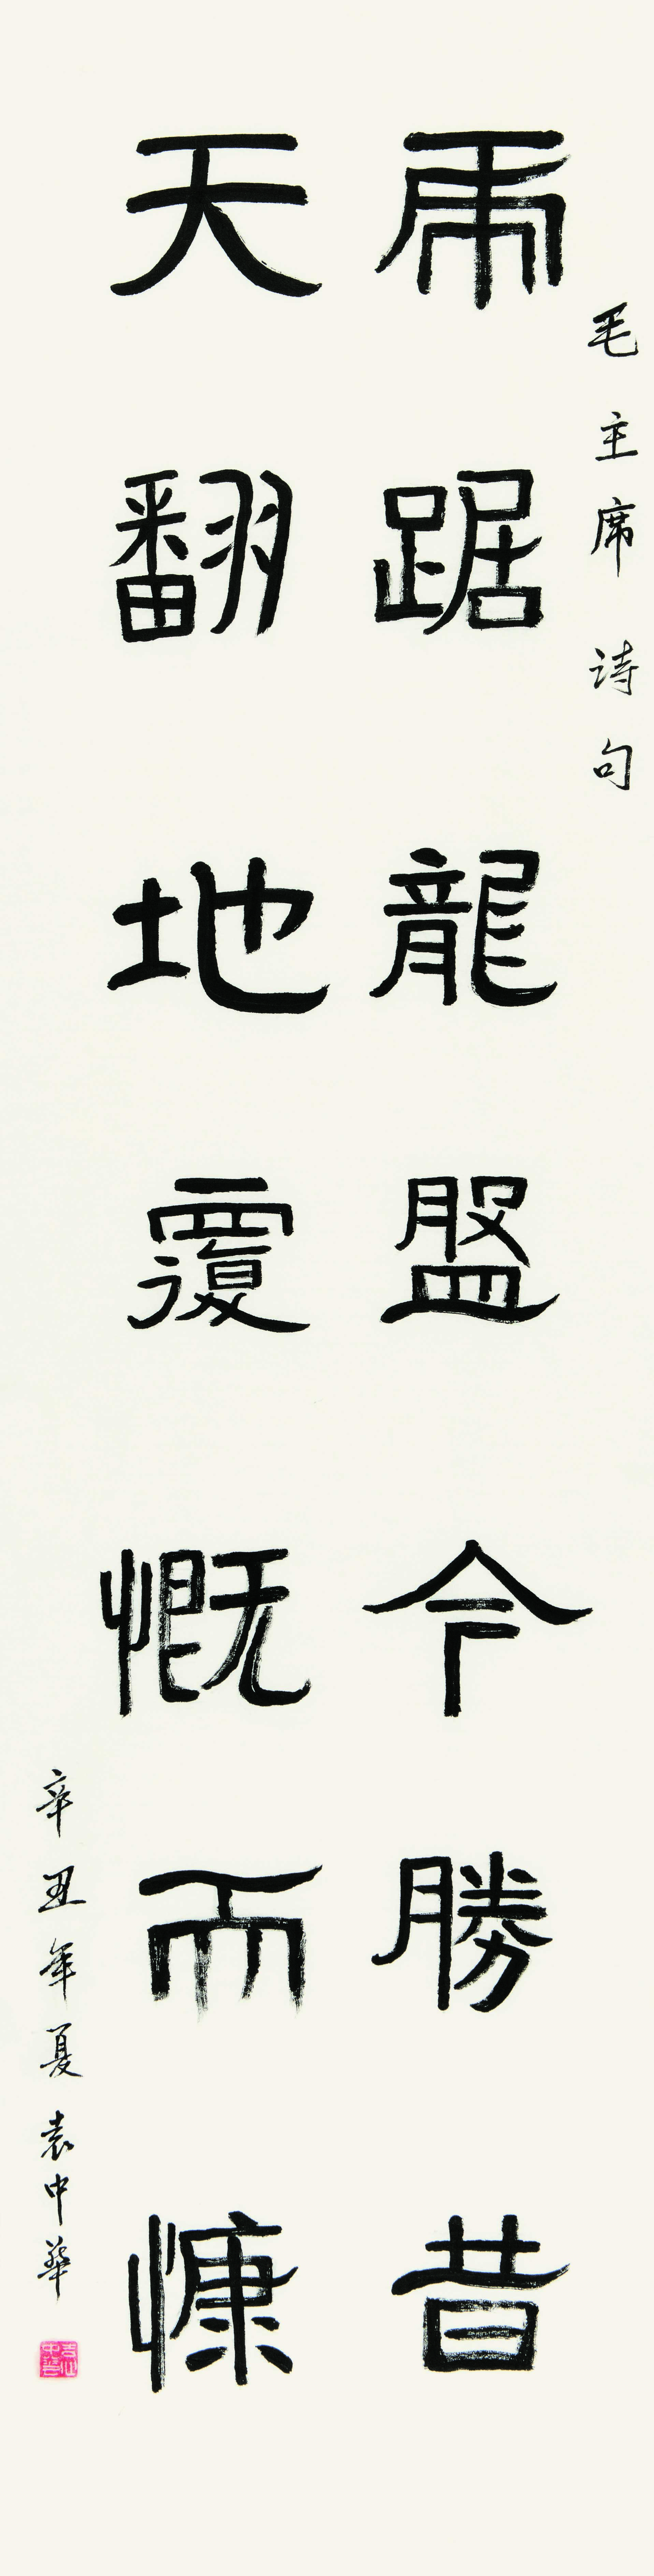 毛主席诗句
虎踞龍盤今勝昔
天翻地覆慨而慷
辛丑年夏袁中華